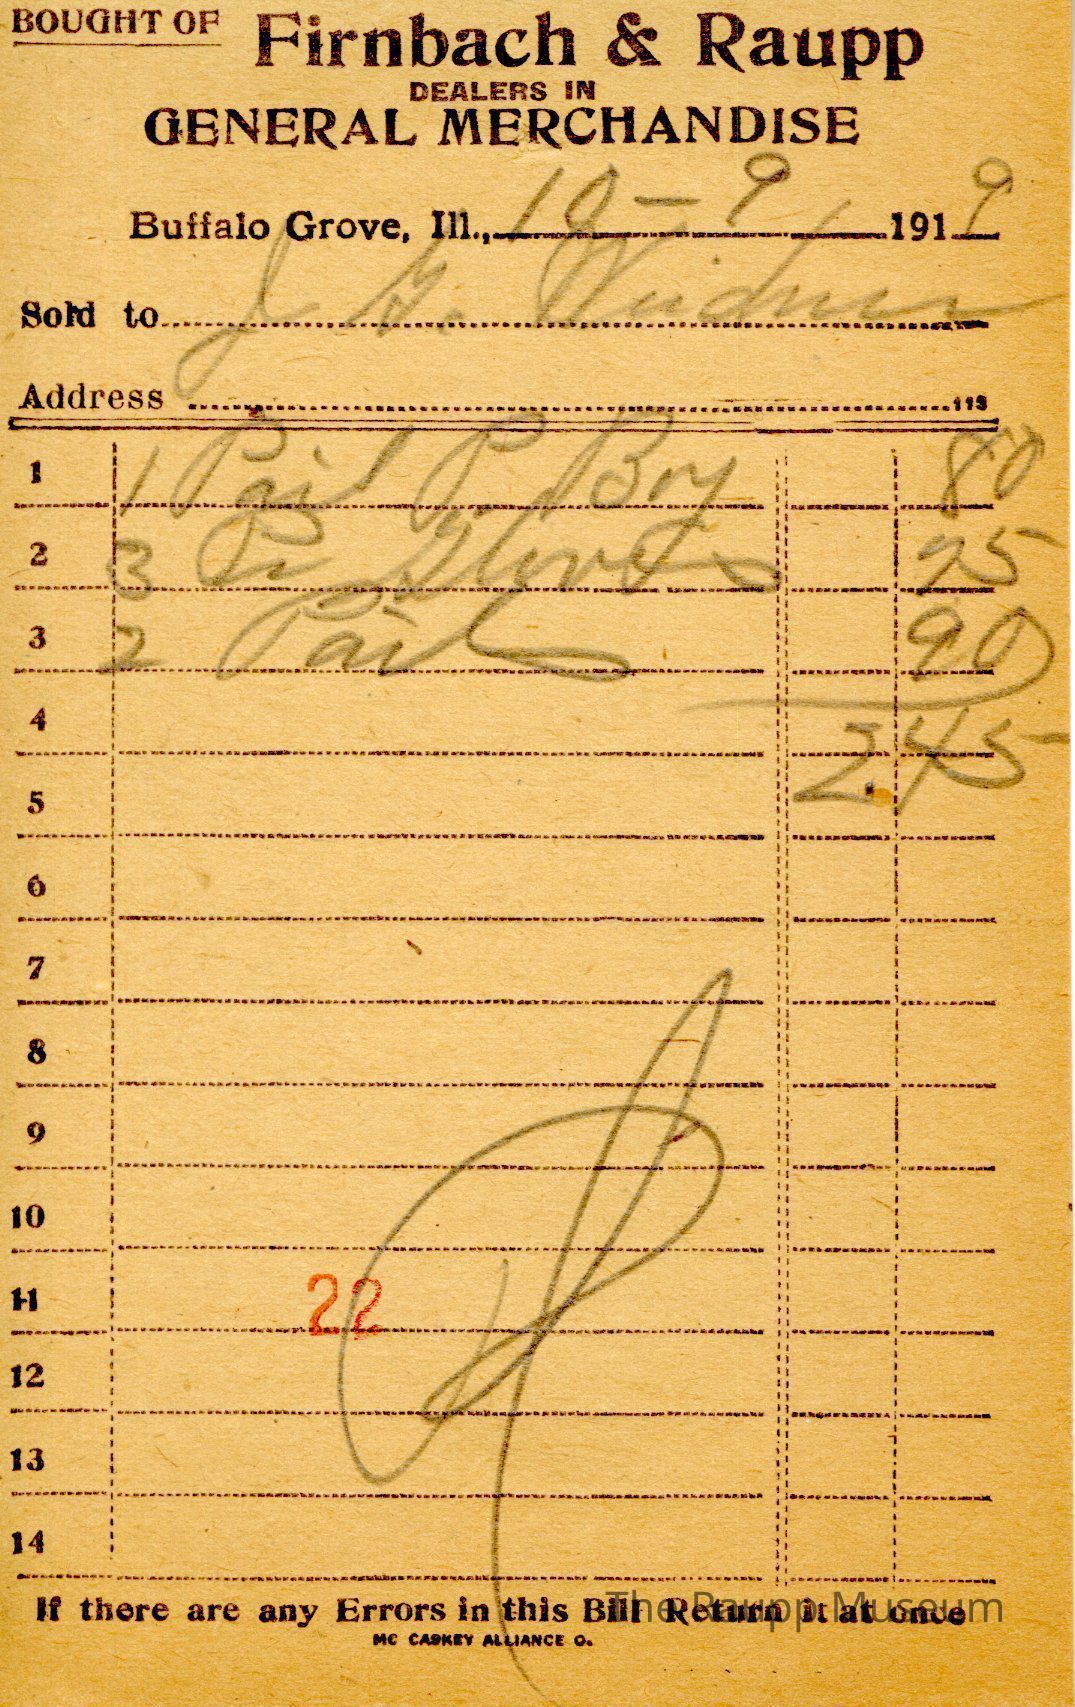 BOUGHT OF Firnbach & Raupp
DEALERS IN
GENERAL MERCHANDISE
Buffalo Grove, Ill., 10 - 9 1919
Sold to J
Address 113
1 1 Pail P Boy 80
2 3 Pr Gloves 75
3 2 Pail 90
4 2.45
5
6
7
8
9
10
11
22
12
13
14
If there are any Errors in this Bill Return it at once
The Raupp Museum
MC CASKEY ALLIANCE O.